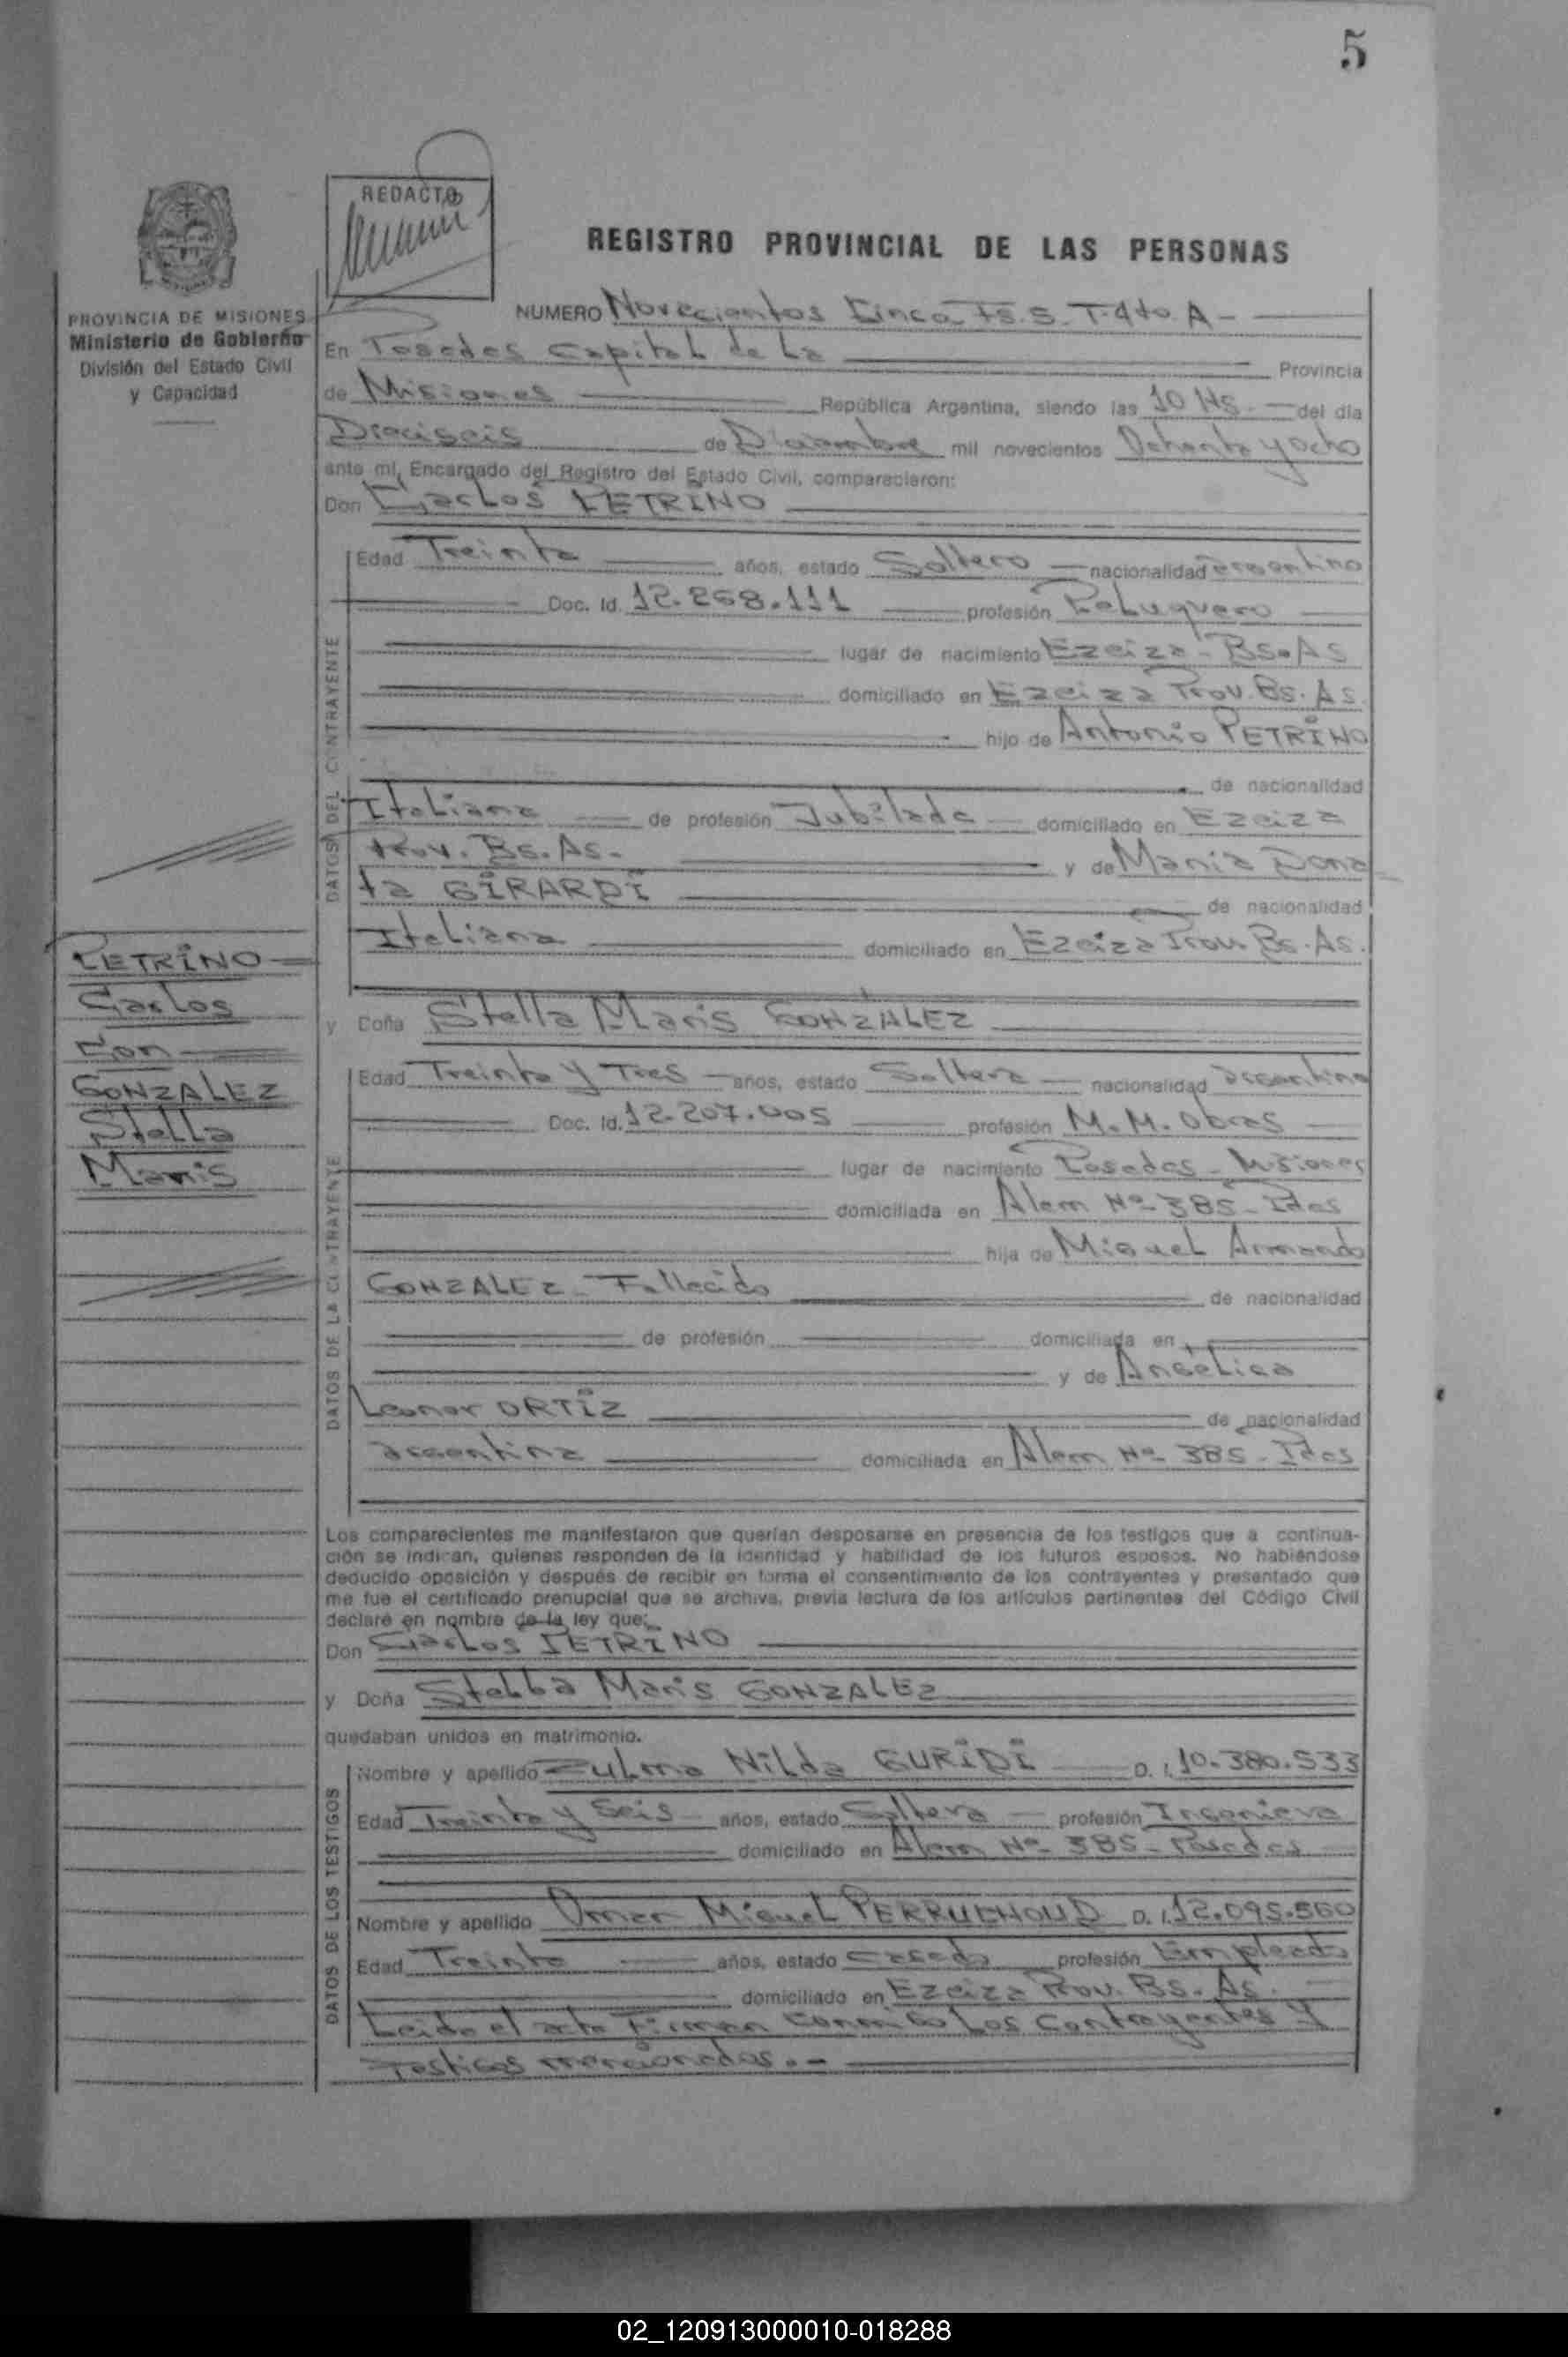 5
REDACTO
REGISTRO PROVINCIAL DE LAS PERSONAS
PROVINCIA DE MISIONES
Ministerio de Gobierno
División del Estado Civil
y Capacidad
NUMERO Novecientos Cinco Fs. 5. T. 4to. A -
En Posadas Capital de La Provincia
de Misiones República Argentina, siendo las 10 Hs. del día
Dieciseis de Diciembre mil novecientos Ochenta y ocho
ante mí, Encargado del Registro del Estado Civil, comparecieron:
Don Carlos PETRINO
DATOS DEL CONTRAYENTE
Edad Treinta años, estado Soltero nacionalidad argentino
Doc. Id. 12.268.111 profesión Peluquero
lugar de nacimiento Ezeiza - Bs. As
domiciliado en Ezeiza Prov. Bs. As.
hijo de Antonio PETRINO
de nacionalidad
Italiana de profesión Jubilado domiciliado en Ezeiza
Prov. Bs. As. y de Maria Dona
ta GIRARDI de nacionalidad
Italiana domiciliado en Ezeiza Prov. Bs. As.
PETRINO
Carlos
Con
GONZALEZ
Stella
Maris
y Doña Stella Maris GONZALEZ
DATOS DE LA CONTRAYENTE
Edad Treinta y Tres años, estado Soltera nacionalidad argentina
Doc. Id. 12.207.005 profesión M.M. Obras
lugar de nacimiento Posadas - Misiones
domiciliada en Alem Nº 385 - Pdas
hija de Miguel Armando
GONZALEZ - Fallecido de nacionalidad
de profesión domiciliada en
y de Angelica
Leonor ORTIZ de nacionalidad
argentina domiciliada en Alem Nº 385 - Pdas
Los comparecientes me manifestaron que querían desposarse en presencia de los testigos que a continua-
ción se indican, quienes responden de la identidad y habilidad de los futuros esposos. No habiéndose
deducido oposición y después de recibir en forma el consentimiento de los contrayentes y presentado que
me fue el certificado prenupcial que se archiva, previa lectura de los artículos pertinentes del Código Civil
declaré en nombre de la ley que:
Don Carlos PETRINO
y Doña Stella Maris GONZALEZ
quedaban unidos en matrimonio.
DATOS DE LOS TESTIGOS
Nombre y apellido Zulma Nilda GURIDI D. I. 10.380.533
Edad Treinta y Seis años, estado Soltera profesión Ingeniera
domiciliado en Alem Nº 385 - Posadas
Nombre y apellido Omar Miguel PERRUCHOUD D. I. 12.095.560
Edad Treinta años, estado casado profesión Empleado
domiciliado en Ezeiza Prov. Bs. As.
Leida el acta Firman conmigo Los Contrayentes y
Testigos mencionados. -
02_120913000010-018288